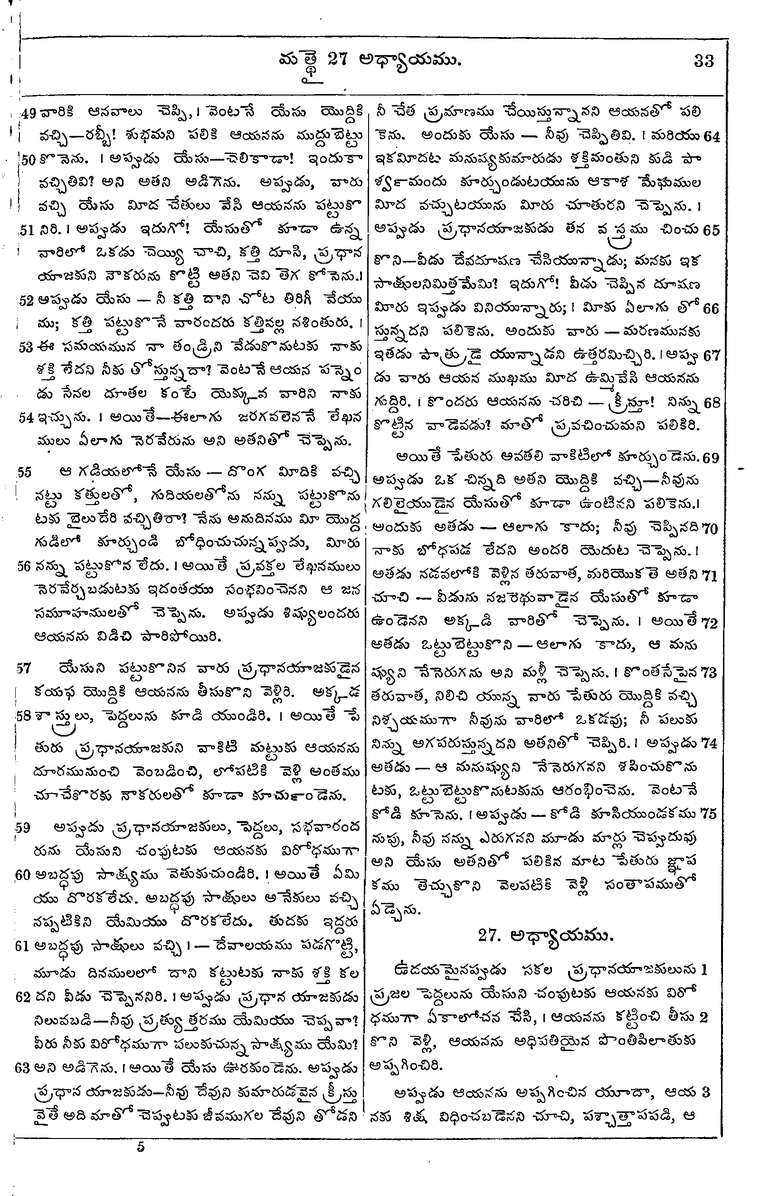 మత్థై 27 అధ్యాయము. 33
49 వారికి ఆనవాలు చెప్పి, । వెంటనే యేసు యొద్దికి
వచ్చి—రబ్బీ! శుభమని పలికి ఆయనను ముద్దుబెట్టు
50 కొనెను. । అప్పుడు యేసు—చెలికాడా! ఇందుకా
వచ్చితివి? అని అతని అడిగెను. అప్పుడు, వారు
వచ్చి యేసు మీద చేతులు వేసి ఆయనను పట్టుకొ
51 నిరి. । అప్పుడు ఇదుగో! యేసుతో కూడా ఉన్న
వారిలో ఒకడు చెయ్యి చాచి, కత్తి దూసి, ప్రధాన
యాజకుని నౌకరును కొట్టి అతని చెవి తెగ కోసెను.।
52 అప్పుడు యేసు — నీ కత్తి దాని చోట తిరిగీ వేయు
ము; కత్తి పట్టుకొనే వారందరు కత్తివల్ల నశింతురు. ।
53 ఈ సమయమున నా తండ్రిని వేడుకొనుటకు నాకు
శక్తి లేదని నీకు తోస్తున్నదా? వెంటనే ఆయన పన్నెం
డు సేనల దూతల కంటే యెక్కువ వారిని నాకు
54 ఇచ్చును. । అయితే—ఈలాగు జరగవలెననే లేఖన
ములు ఏలాగు నెరవేరును అని అతనితో చెప్పెను.
55 ఆ గడియలోనే యేసు — దొంగ మీదికి వచ్చి
నట్టు కత్తులతో, గుదియలతోను నన్ను పట్టుకొను
టకు బైలుదేరి వచ్చితిరా? నేను అనుదినము మీ యొద్ద
గుడిలో కూర్చుండి బోధించుచున్నప్పుడు, మీరు
56 నన్ను పట్టుకొన లేదు. । అయితే ప్రవక్తల లేఖనములు
నెరవేర్చబడుటకు ఇదంతయు సంభవించెనని ఆ జన
సమూహములతో చెప్పెను. అప్పుడు శిష్యులందరు
ఆయనను విడిచి పారిపోయిరి.
57 యేసుని పట్టుకొనిన వారు ప్రధానయాజకుడైన
కయఫ యొద్దికి ఆయనను తీసుకొని వెళ్లిరి. అక్కడ
58 శాస్త్రులు, పెద్దలును కూడి యుండిరి. । అయితే పే
తురు ప్రధానయాజకుని వాకిటి మట్టుకు ఆయనను
దూరమునుంచి వెంబడించి, లోపటికి వెళ్లి అంతము
చూచేకొరకు నౌకరులతో కూడా కూచుణ౯డెను.
59 అప్పుడు ప్రధానయాజకులు, పెద్దలు, సభవారంద
రును యేసుని చంపుటకు ఆయనకు విరోధముగా
60 అబద్ధపు సాక్ష్యము వెతుకుచుండిరి. । అయితే ఏమి
యు దొరకలేదు. అబద్ధపు సాక్షులు అనేకులు వచ్చి
నప్పటికిని యేమియు దొరకలేదు. తుదకు ఇద్దరు
61 అబద్ధపు సాక్షులు వచ్చి । — దేవాలయము పడగొట్టి,
మూడు దినములలో దాని కట్టుటకు నాకు శక్తి కల
62 దని వీడు చెప్పెననిరి. । అప్పుడు ప్రధాన యాజకుడు
నిలువబడి—నీవు ప్రత్యుత్తరము యేమియు చెప్పవా?
వీరు నీకు విరోధముగా పలుకుచున్న సాక్ష్యము యేమి?
63 అని అడిగెను. । అయితే యేసు ఊరకుండెను. అప్పుడు
ప్రధాన యాజకుడు—నీవు దేవుని కుమారుడవైన క్రీస్తు
వైతే అది మాతో చెప్పుటకు జీవముగల దేవుని తోడని
నీ చేత ప్రమాణము చేయిస్తున్నానని ఆయనతో పలి
కెను. అందుకు యేసు — నీవు చెప్పితివి. । మరియు 64
ఇకమీదట మనుష్యకుమారుడు శక్తిమంతుని కుడి పా
శ్వ౯మందు కూర్చుండుటయును ఆకాశ మేఘముల
మీద వచ్చుటయును మీరు చూతురని చెప్పెను. ।
అప్పుడు ప్రధానయాజకుడు తన వస్త్రము చించు 65
కొని—వీడు దేవదూషణ చేసియున్నాడు; మనకు ఇక
సాక్షులనిమిత్తమేమి? ఇదుగో! వీడు చెప్పిన దూషణ
మీరు ఇప్పుడు వినియున్నారు; । మీకు ఏలాగు తో 66
స్తున్నదని పలికెను. అందుకు వారు — మరణమునకు
ఇతడు పాత్రుడై యున్నాడని ఉత్తరమిచ్చిరి. । అప్పు 67
డు వారు ఆయన ముఖము మీద ఉమ్మివేసి ఆయనను
గుద్దిరి. । కొందరు ఆయనను చరిచి — క్రీస్తూ! నిన్ను 68
కొట్టిన వాడెవడు? మాతో ప్రవచించుమని పలికిరి.
అయితే పేతురు అవతలి వాకిటిలో కూర్చుండెను. 69
అప్పుడు ఒక చిన్నది అతని యొద్దికి వచ్చి—నీవును
గలిలైయుడైన యేసుతో కూడా ఉంటివని పలికెను.।
అందుకు అతడు — ఆలాగు కాదు; నీవు చెప్పినది 70
నాకు బోధపడ లేదని అందరి యెదుట చెప్పెను. ।
అతడు నడవలోకి వెళ్లిన తరువాత, మరియొకతె అతని 71
చూచి — వీడును నజరెథువాడైన యేసుతో కూడా
ఉండెనని అక్కడి వారితో చెప్పెను. । అయితే 72
అతడు ఒట్టుబెట్టుకొని — ఆలాగు కాదు, ఆ మను
ష్యుని నేనెరుగను అని మళ్లీ చెప్పెను. । కొంతసేపైన 73
తరువాత, నిలిచి యున్న వారు పేతురు యొద్దికి వచ్చి
నిశ్చయముగా నీవును వారిలో ఒకడవు; నీ పలుకు
నిన్ను అగపరుస్తున్నదని అతనితో చెప్పిరి. । అప్పుడు 74
అతడు — ఆ మనుష్యుని నేనెరుగనని శపించుకొను
టకు, ఒట్టుబెట్టుకొనుటకును ఆరంభించెను. వెంటనే
కోడి కూసెను. । అప్పుడు — కోడి కూసియుండకము 75
నుపు, నీవు నన్ను ఎరుగనని మూడు మార్లు చెప్పుదువు
అని యేసు అతనితో పలికిన మాట పేతురు జ్ఞాప
కము తెచ్చుకొని వెలపటికి వెళ్లి సంతాపముతో
ఏడ్చెను.
27. అధ్యాయము.
ఉదయమైనప్పుడు సకల ప్రధానయాజకులును 1
ప్రజల పెద్దలును యేసుని చంపుటకు ఆయనకు విరో
ధముగా ఏకాలోచన చేసి, । ఆయనను కట్టించి తీసు 2
కొని వెళ్లి, ఆయనను అధిపతియైన పొంతిపిలాతుకు
అప్పగించిరి.
అప్పుడు ఆయనను అప్పగించిన యూదా, ఆయ 3
నకు శిక్ష విధించబడెనని చూచి, పశ్చాత్తాపపడి, ఆ
5